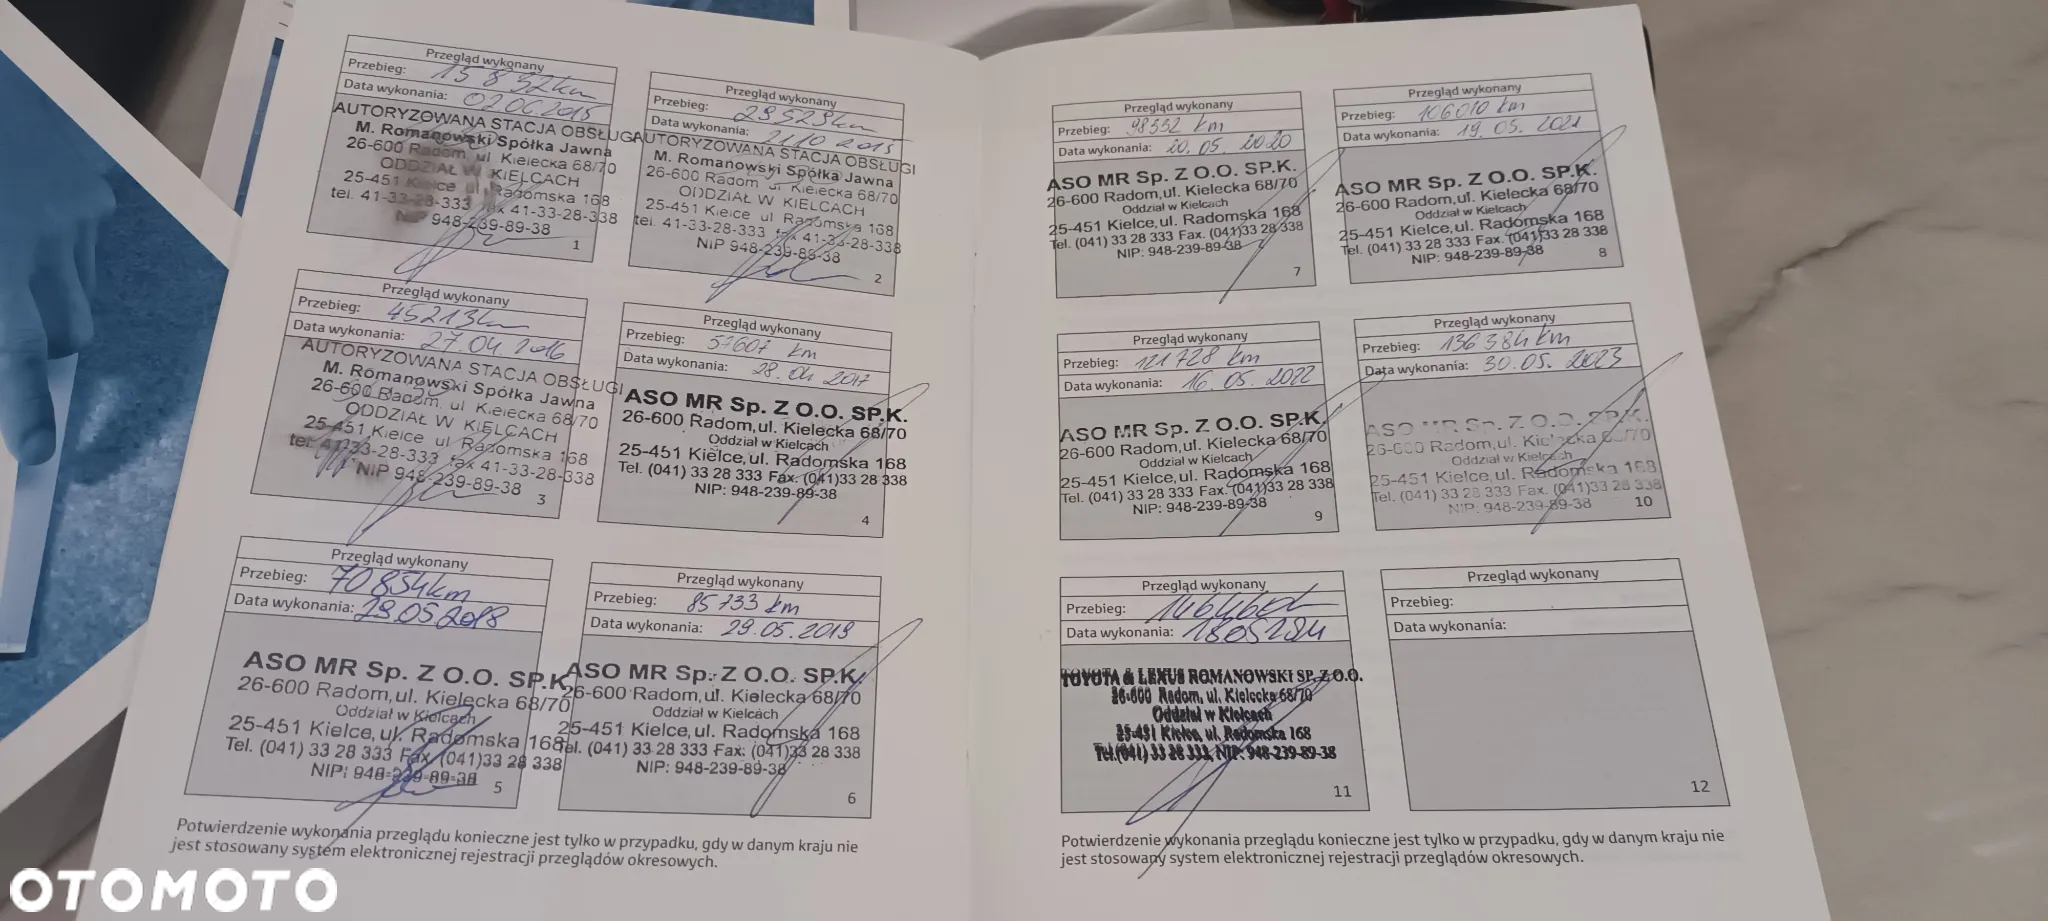 Przegląd wykonany
Przebieg: 15 832km
Data wykonania: 02.06.2015
AUTORYZOWANA STACJA OBSŁUGI
M. Romanowski Spółka Jawna
26-600 Radom, ul Kielecka 68/70
ODDZIAŁ W KIELCACH
25-451 Kielce ul Radomska 168
tel. 41-33-28-333 fax 41-33-28-338
NIP 948-239-89-38
1
Przegląd wykonany
Przebieg: 29529km
Data wykonania: 21.10 2015
AUTORYZOWANA STACJA OBSŁUGI
M. Romanowski Spółka Jawna
26-600 Radom ul Kielecka 68/70
ODDZIAŁ W KIELCACH
25-451 Kielce ul Radomska 168
tel. 41-33-28-333 fax 41-33-28-338
NIP 948-239-89-38
2
Przegląd wykonany
Przebieg: 45213km
Data wykonania: 27.04.2016
AUTORYZOWANA STACJA OBSŁUGI
M. Romanowski Spółka Jawna
26-600 Radom, ul Kielecka 68/70
ODDZIAŁ W KIELCACH
25-451 Kielce ul Radomska 168
tel. 41-33-28-333 fax 41-33-28-338
NIP 948-239-89-38
3
Przegląd wykonany
Przebieg: 57607 km
Data wykonania: 28.04 2017
ASO MR Sp. Z O.O. SP.K.
26-600 Radom,ul. Kielecka 68/70
Oddział w Kielcach
25-451 Kielce,ul. Radomska 168
Tel. (041) 33 28 333 Fax. (041)33 28 338
NIP: 948-239-89-38
4
Przegląd wykonany
Przebieg: 70854km
Data wykonania: 29.05.2018
ASO MR Sp. Z O.O. SP.K.
26-600 Radom,ul. Kielecka 68/70
Oddział w Kielcach
25-451 Kielce,ul. Radomska 168
Tel. (041) 33 28 333 Fax. (041)33 28 338
NIP: 948-239-89-38
5
Przegląd wykonany
Przebieg: 85733 km
Data wykonania: 29.05.2019
ASO MR Sp. Z O.O. SP.K.
26-600 Radom,ul. Kielecka 68/70
Oddział w Kielcach
25-451 Kielce,ul. Radomska 168
Tel. (041) 33 28 333 Fax. (041)33 28 338
NIP: 948-239-89-38
6
Potwierdzenie wykonania przeglądu konieczne jest tylko w przypadku, gdy w danym kraju nie
jest stosowany system elektronicznej rejestracji przeglądów okresowych.
Przegląd wykonany
Przebieg: 98332 km
Data wykonania: 20.05.2020
ASO MR Sp. Z O.O. SP.K.
26-600 Radom,ul. Kielecka 68/70
Oddział w Kielcach
25-451 Kielce,ul. Radomska 168
Tel. (041) 33 28 333 Fax. (041)33 28 338
NIP: 948-239-89-38
7
Przegląd wykonany
Przebieg: 106010 km
Data wykonania: 19.05.2021
ASO MR Sp. Z O.O. SP.K.
26-600 Radom,ul. Kielecka 68/70
Oddział w Kielcach
25-451 Kielce,ul. Radomska 168
Tel. (041) 33 28 333 Fax. (041)33 28 338
NIP: 948-239-89-38
8
Przegląd wykonany
Przebieg: 121728 km
Data wykonania: 16.05.2022
ASO MR Sp. Z O.O. SP.K.
26-600 Radom,ul. Kielecka 68/70
Oddział w Kielcach
25-451 Kielce,ul. Radomska 168
Tel. (041) 33 28 333 Fax. (041)33 28 338
NIP: 948-239-89-38
9
Przegląd wykonany
Przebieg: 136384 km
Data wykonania: 30.05.2023
ASO MR Sp. Z O.O. SP.K.
26-600 Radom,ul. Kielecka 68/70
Oddział w Kielcach
25-451 Kielce,ul. Radomska 168
Tel. (041) 33 28 333 Fax. (041)33 28 338
NIP: 948-239-89-38
10
Przegląd wykonany
Przebieg:
Data wykonania:
TOYOTA & LEXUS ROMANOWSKI SP. Z O.O.
26-600 Radom, ul. Kielecka 68/70
Oddział w Kielcach
25-451 Kielce, ul. Radomska 168
Tel.(041) 33 28 333, NIP: 948-239-89-38
11
Przegląd wykonany
Przebieg:
Data wykonania:
12
Potwierdzenie wykonania przeglądu konieczne jest tylko w przypadku, gdy w danym kraju nie
jest stosowany system elektronicznej rejestracji przeglądów okresowych.
OTOMOTO